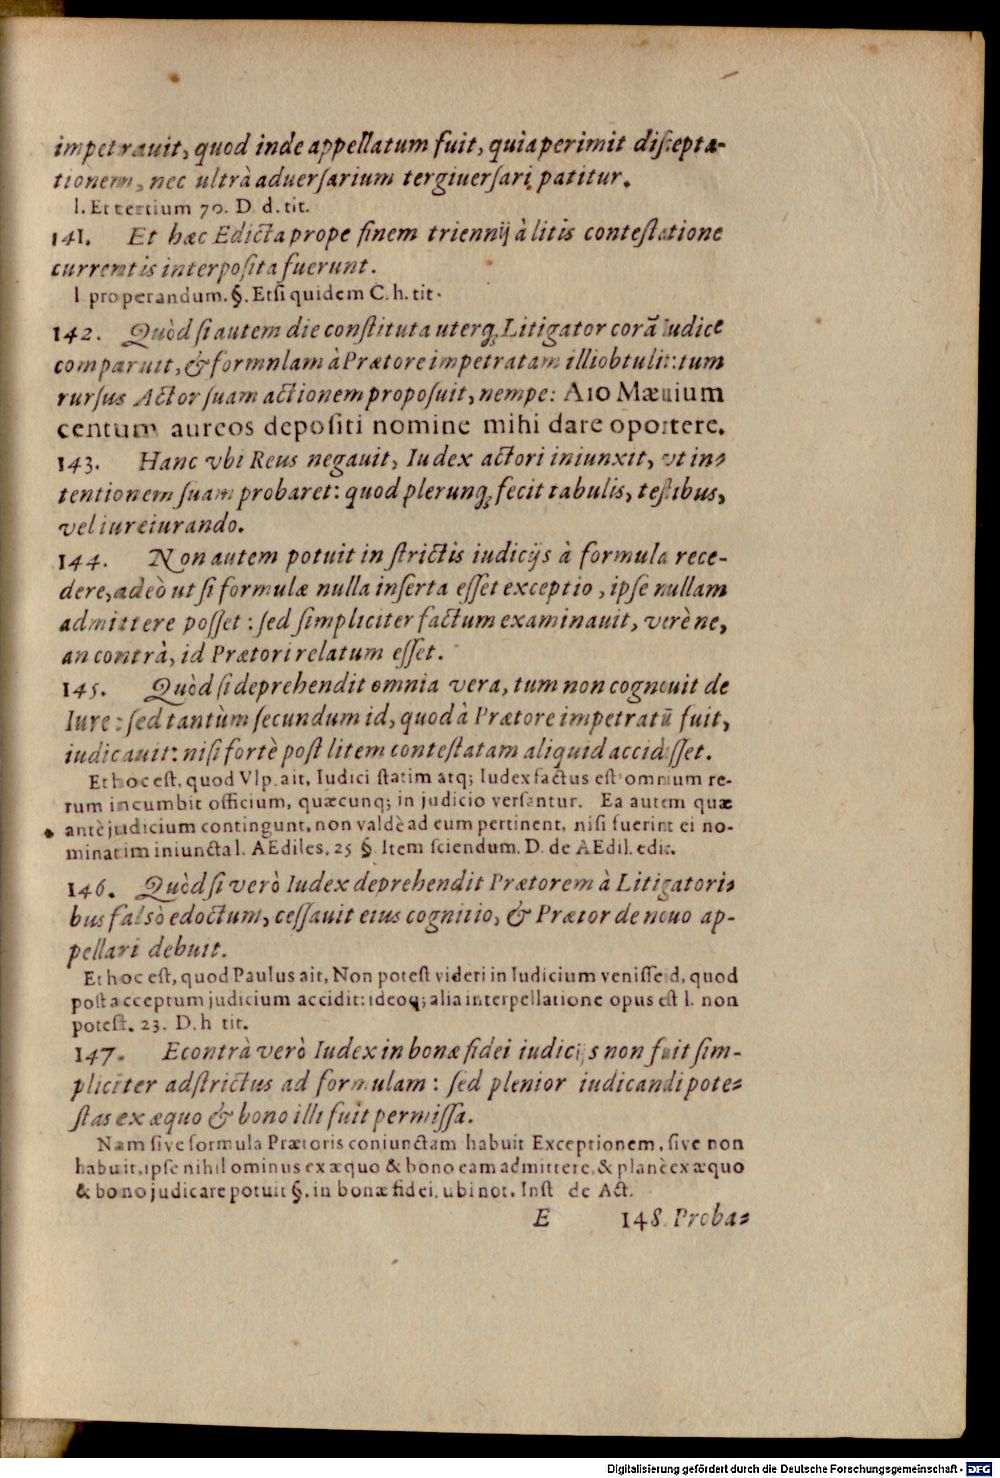 impetrauit, quod inde appellatum fuit, quia perimit discepta-
tionem, nec ultrà aduersarium tergiuersari patitur.
l. Et tertium 70. D d. tit.
141. Et hæc Edicta prope finem triennij à litis contestatione
currentis interposita fuerunt.
l properandum. §. Etsi quidem C. h. tit.
142. Quòd si autem die constituta uterq; Litigator corā iudice
comparuit, & formnlam à Prætore impetratam illi obtulit: tum
rursus Actor suam actionem proposuit, nempe: Aio Mæuium
centum aureos depositi nomine mihi dare oportere.
143. Hanc vbi Reus negauit, Iudex actori iniunxit, vt in-
tentionem suam probaret: quod plerunq; fecit tabulis, testibus,
vel iureiurando.
144. Non autem potuit in strictis iudicijs à formula rece-
dere, adeò ut si formulæ nulla inserta esset exceptio, ipse nullam
admittere posset: sed simpliciter factum examinauit, verè ne,
an contrà, id Prætori relatum esset.
145. Quòd si deprehendit omnia vera, tum non cognouit de
Iure: sed tantùm secundum id, quod à Prætore impetratū fuit,
iudicauit: nisi fortè post litem contestatam aliquid accidisset.
Et hoc est, quod Vlp. ait, Iudici statim atq; Iudex factus est omnium re-
rum incumbit officium, quæcunq; in judicio versantur. Ea autem quæ
antè judicium contingunt, non valdè ad eum pertinent, nisi fuerint ei no-
minatim iniuncta l. AEdiles. 25 §. Item sciendum. D. de AEdil. edic.
146. Quòd si verò Iudex deprehendit Prætorem à Litigatori-
bus falsò edoctum, cessauit eius cognitio, & Prætor de nouo ap-
pellari debuit.
Et hoc est, quod Paulus ait, Non potest videri in Iudicium venisse id, quod
post acceptum judicium accidit: ideoq; alia interpellatione opus est l. non
potest. 23. D. h tit.
147. Econtrà verò Iudex in bonæ fidei iudicijs non fuit sim-
pliciter adstrictus ad formulam: sed plenior iudicandi pote-
stas ex æquo & bono illi fuit permissa.
Nam sive formula Prætoris coniunctam habuit Exceptionem, sive non
habuit, ipse nihilominus ex æquo & bono eam admittere, & planè ex æquo
& bono judicare potuit §. in bonæ fidei. ubi not. Inst de Act.
E 148. Proba-
Digitalisierung gefördert durch die Deutsche Forschungsgemeinschaft - DFG